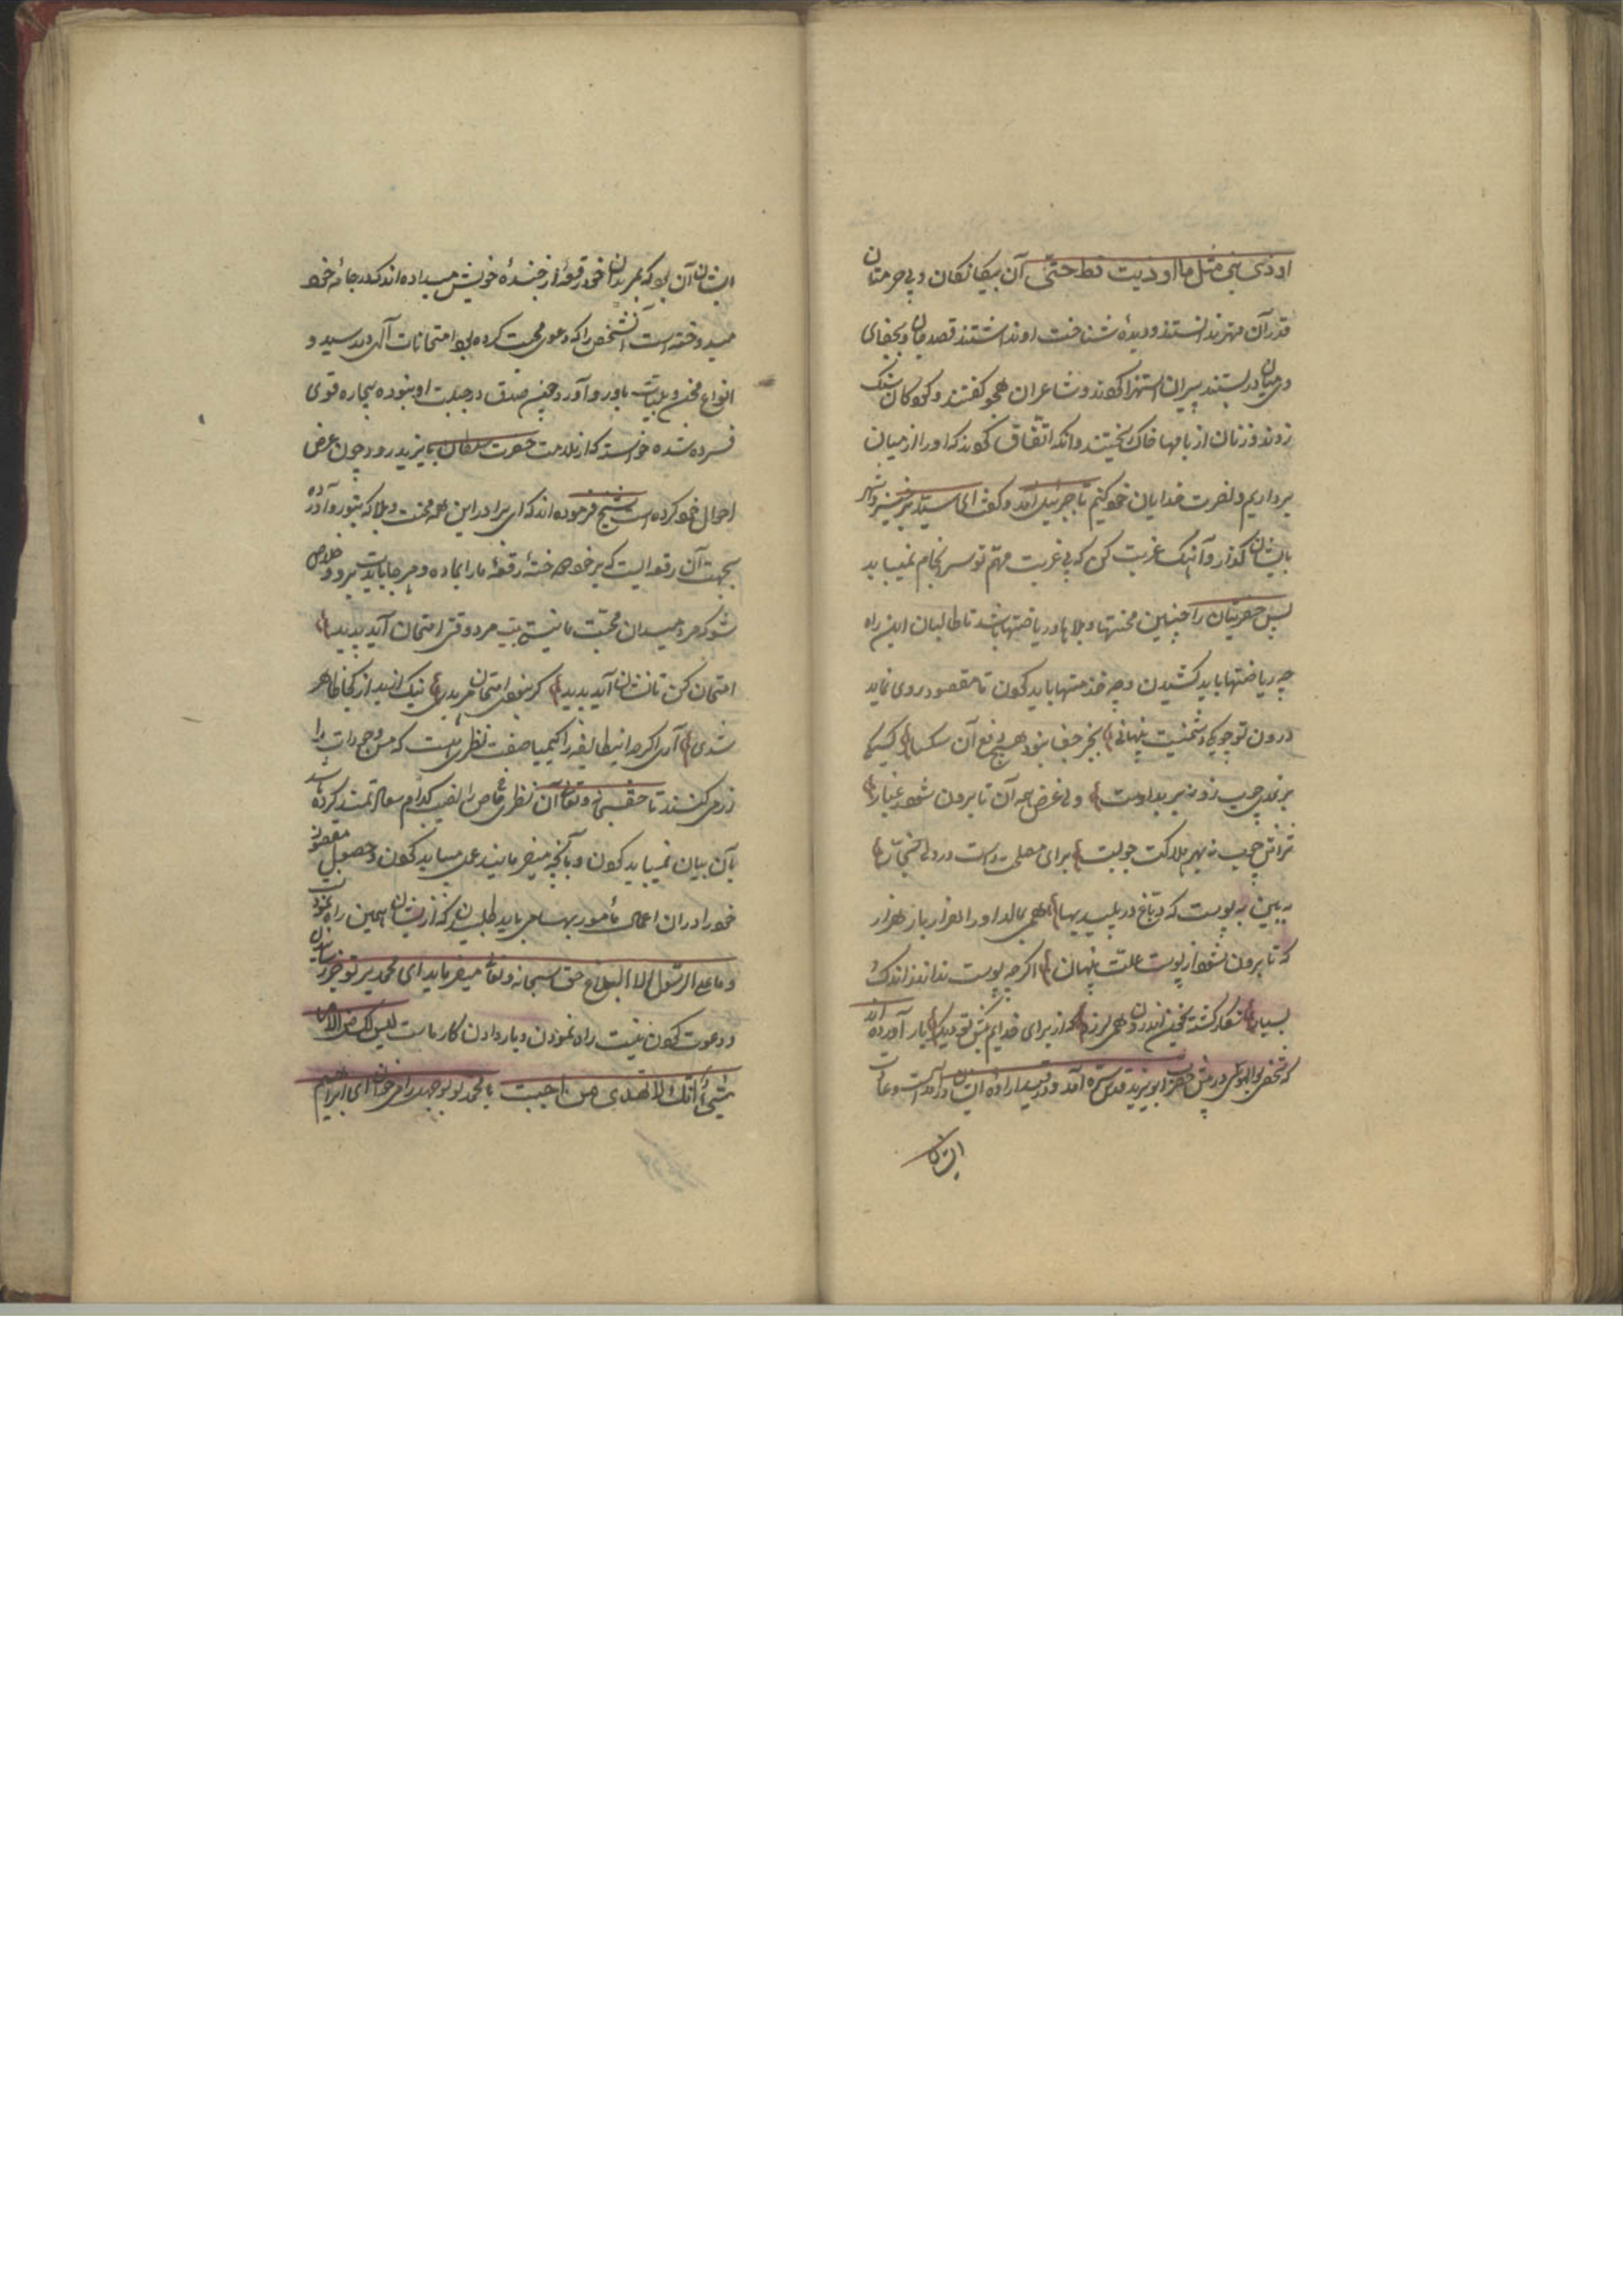 اوذی نبی مثل ما اوذیت قط حتی آن بیکانکان و بی حرمتان
قدر آن مهتر ندانستند و دیدهٔ شناخت او نداشتند قصد جان و بجفای
در میان در بستند پیران استهزا کردند و شاعران هجو کفتند و کودکان سنک
زدند و زنان از بامها خاک بیختند وانکه اتفاق کردند که او را از میان
برداریم و نصرت خدایان خود کنیم تا جبرئیل آمد و کفت ای سید برخیز و
بایشان کذار و آهنک غربت کن که بی غربت مهم تو سرانجام نمییابد
پس حضرتشان را چنین محنتها و بلاها و ریاضتها باشد تا طالبان این راه
چه ریاضتها باید کشیدن و چه خدمتها باید کردن تا مقصود روی نماید
درون تو چو یکی دشمنیست پنهانی بجز جفا نبود هیچ دفع آن سکسار کسیکه
بر نمدی چوب زد نه بر نمد است ولی غرض همه آن تا برون شود غبار
تراش چوب نه بهر هلاکت چوبست برای مصلحت است در دل نجار
ببین به پوست که دباغ در پلیدیها همی بمالد او را هزار بار هزار
که تا برون شود از پوست علت پنهان اکرچه پوست نداند ز اندک و
بسیار شکار کشته بخون اندرون همی لرزد که از برای خدایم بکش تو دیکر بار آورده اند
که شخصی بوالهوس در پیش حضرت ابو یزید قدس سره آمد و در قید ارادهٔ ایشان در آمده است و عادت
ایشان
ایشان آن بود که بمریدان خود رقعهٔ از خرقهٔ خویش میداده اند که در جامه خود
میدوخته است آن شخص را که دعوی محبت کرده بود امتحانات آلهی در رسید و
انواع محن و بلیات باو رو آورد و چون صدق در جبلت او نبوده بیچاره قوی
فسرده شده خواست که از ملازمت حضرت سلطان بایزید رود چون عرض
احوال خود کرده است شیخ فرموده اند که ای برادر این همه محنت و بلا که بتو رو آورده
بجهت آن رقعه است که بر خود دوختهٔ رقعهٔ ما را بما ده و هر جا بایدت برو و خلاص
شو که مرد میدان محبت ما نیستی بیت مرد وقت امتحان آید پدید
امتحان کن تا نشان آید پدید کر نبودی امتحان هر بدی نیک از بد از کجا ظاهر
شدی آری اکرچه اینطایفه را کیمیا صفت نظری هست که مس وجودات را
زر میکنند تا حق سبحانه و تعالی آن نظر خاص را نصیب کدام سعادتمند کرده باشد
بآن بیان نمییابد کردن و بآنچه میفرمایند عمل میباید کردن و حصول مقصود
خود را در آن اعمال مأمور بها می باید طلبیدن که از ایشان همین راه نمودن
و ما علی الرسول الا البلاغ حق سبحانه و تعالی میفرماید ای محمد بر تو خبر رسانیدن
و دعوت کردن نیست راه نمودن و بار دادن کار ماست لیس لک من الامر
شیء انک لا تهدی من احببت یا محمد تو بوجهل را می خوانی ای ابراهیم